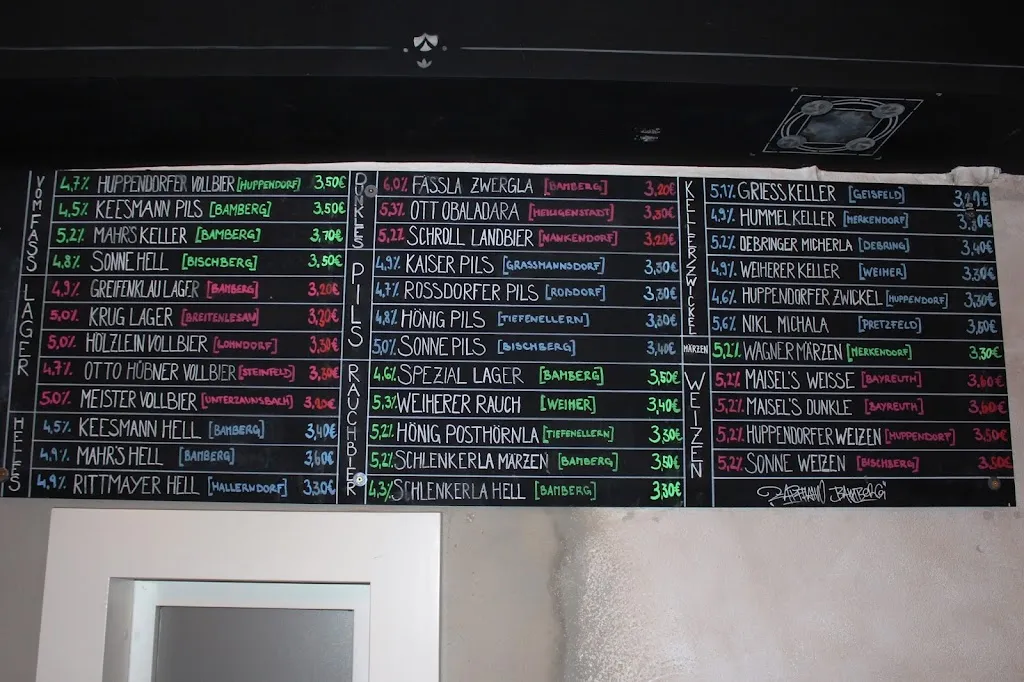 VOM FASS
4,7% HUPPENDORFER VOLLBIER [HUPPENDORF] 3,50€
4,5% KEESMANN PILS [BAMBERG] 3,50€
5,2% MAHR'S KELLER [BAMBERG] 3,70€
4,8% SONNE HELL [BISCHBERG] 3,50€
LAGER
4,9% GREIFENKLAU LAGER [BAMBERG] 3,20€
5,0% KRUG LAGER [BREITENLESAU] 3,20€
5,0% HÖLZLEIN VOLLBIER [LOHNDORF] 3,30€
4,7% OTTO HÜBNER VOLLBIER [STEINFELD] 3,30€
5,0% MEISTER VOLLBIER [UNTERZAUNSBACH] 3,20€
HELLES
4,5% KEESMANN HELL [BAMBERG] 3,40€
4,9% MAHR'S HELL [BAMBERG] 3,60€
4,9% RITTMAYER HELL [HALLERNDORF] 3,30€
DUNKLES
6,0% FÄSSLA ZWERGLA [BAMBERG] 3,20€
5,3% OTT OBALADARA [HEILIGENSTADT] 3,30€
5,2% SCHROLL LANDBIER [NANKENDORF] 3,20€
PILS
4,9% KAISER PILS [GRASSMANNSDORF] 3,30€
4,7% ROSSDORFER PILS [ROßDORF] 3,30€
4,8% HÖNIG PILS [TIEFENELLERN] 3,30€
5,0% SONNE PILS [BISCHBERG] 3,40€
RAUCHBIER
4,6% SPEZIAL LAGER [BAMBERG] 3,50€
5,3% WEIHERER RAUCH [WEIHER] 3,40€
5,2% HÖNIG POSTHÖRNLA [TIEFENELLERN] 3,30€
5,2% SCHLENKERLA MÄRZEN [BAMBERG] 3,50€
4,3% SCHLENKERLA HELL [BAMBERG] 3,30€
KELLER/ZWICKEL
5,1% GRIESSKELLER [GEISFELD] 3,20€
4,9% HUMMELKELLER [MERKENDORF] 3,30€
5,2% DEBRINGER MICHERLA [DEBRING] 3,40€
4,9% WEIHERER KELLER [WEIHER] 3,30€
4,6% HUPPENDORFER ZWICKEL [HUPPENDORF] 3,30€
5,6% NIKL MICHALA [PRETZFELD] 3,50€
MÄRZEN
5,2% WAGNER MÄRZEN [MERKENDORF] 3,30€
WEIZEN
5,2% MAISEL'S WEISSE [BAYREUTH] 3,60€
5,2% MAISEL'S DUNKLE [BAYREUTH] 3,60€
5,2% HUPPENDORFER WEIZEN [HUPPENDORF] 3,50€
5,2% SONNE WEIZEN [BISCHBERG] 3,50€